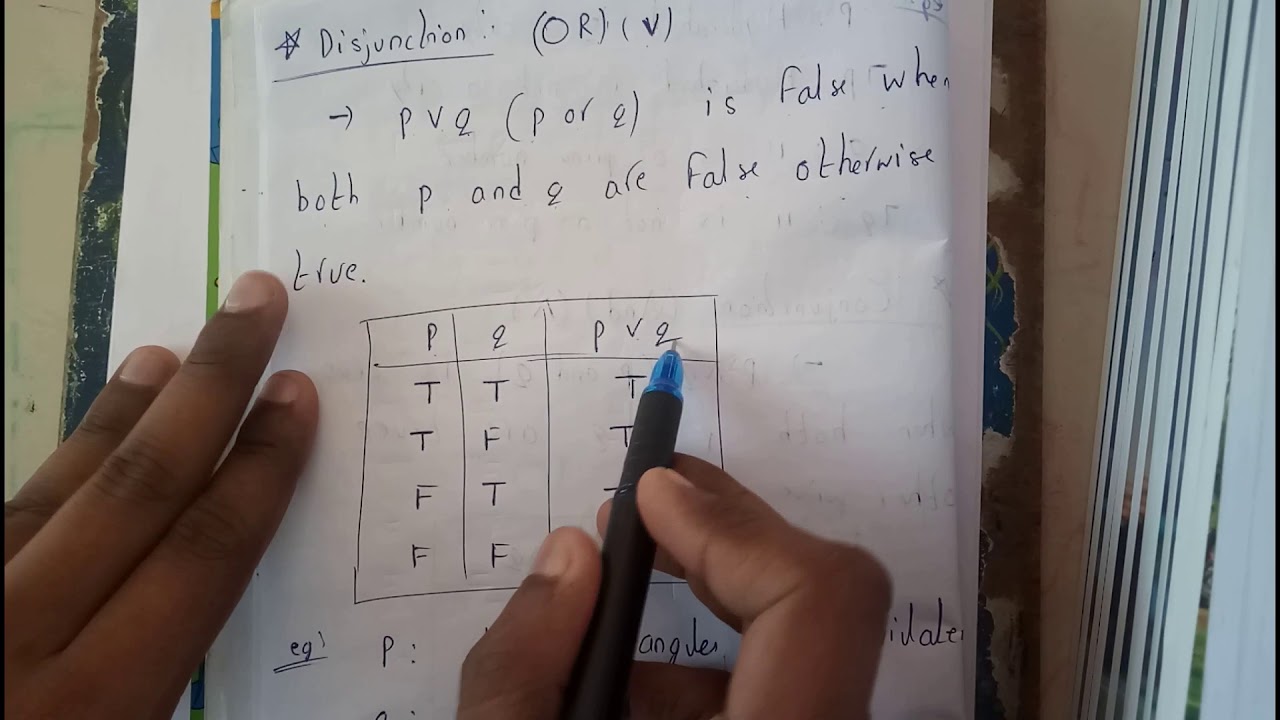 ☆ Disjunction : (OR) (v)
→ p v q (p or q) is false when
both p and q are false otherwise
true.
p q p v q
T T T
T F T
F T T
F F
eg: p: angles